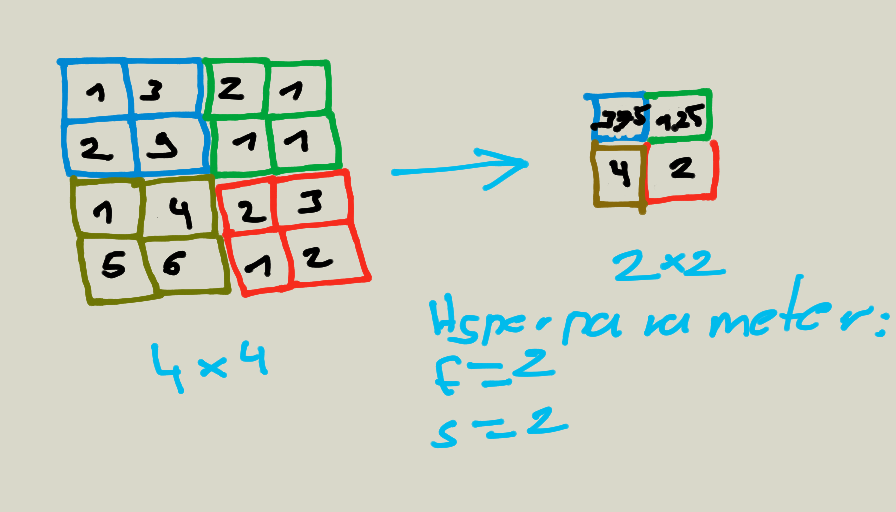 1 3 2 1
2 9 1 1
1 4 2 3
5 6 1 2
4×4
3,75 1,25
4 2
2×2
Hyperparameter:
f=2
s=2